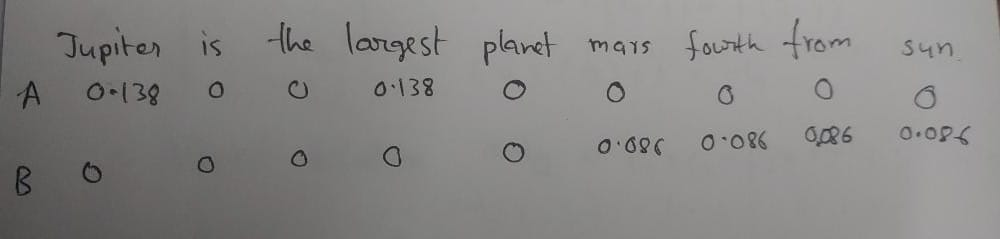 Jupiter is the largest planet mars fourth from sun
A 0.138 0 0 0.138 0 0 0 0 0
B 0 0 0 0 0 0.086 0.086 0.086 0.086